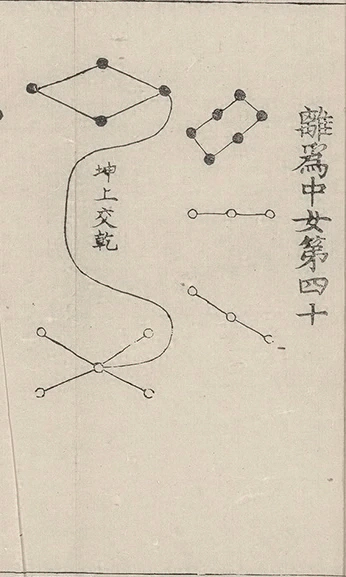 離為中女第四十
坤上交乾